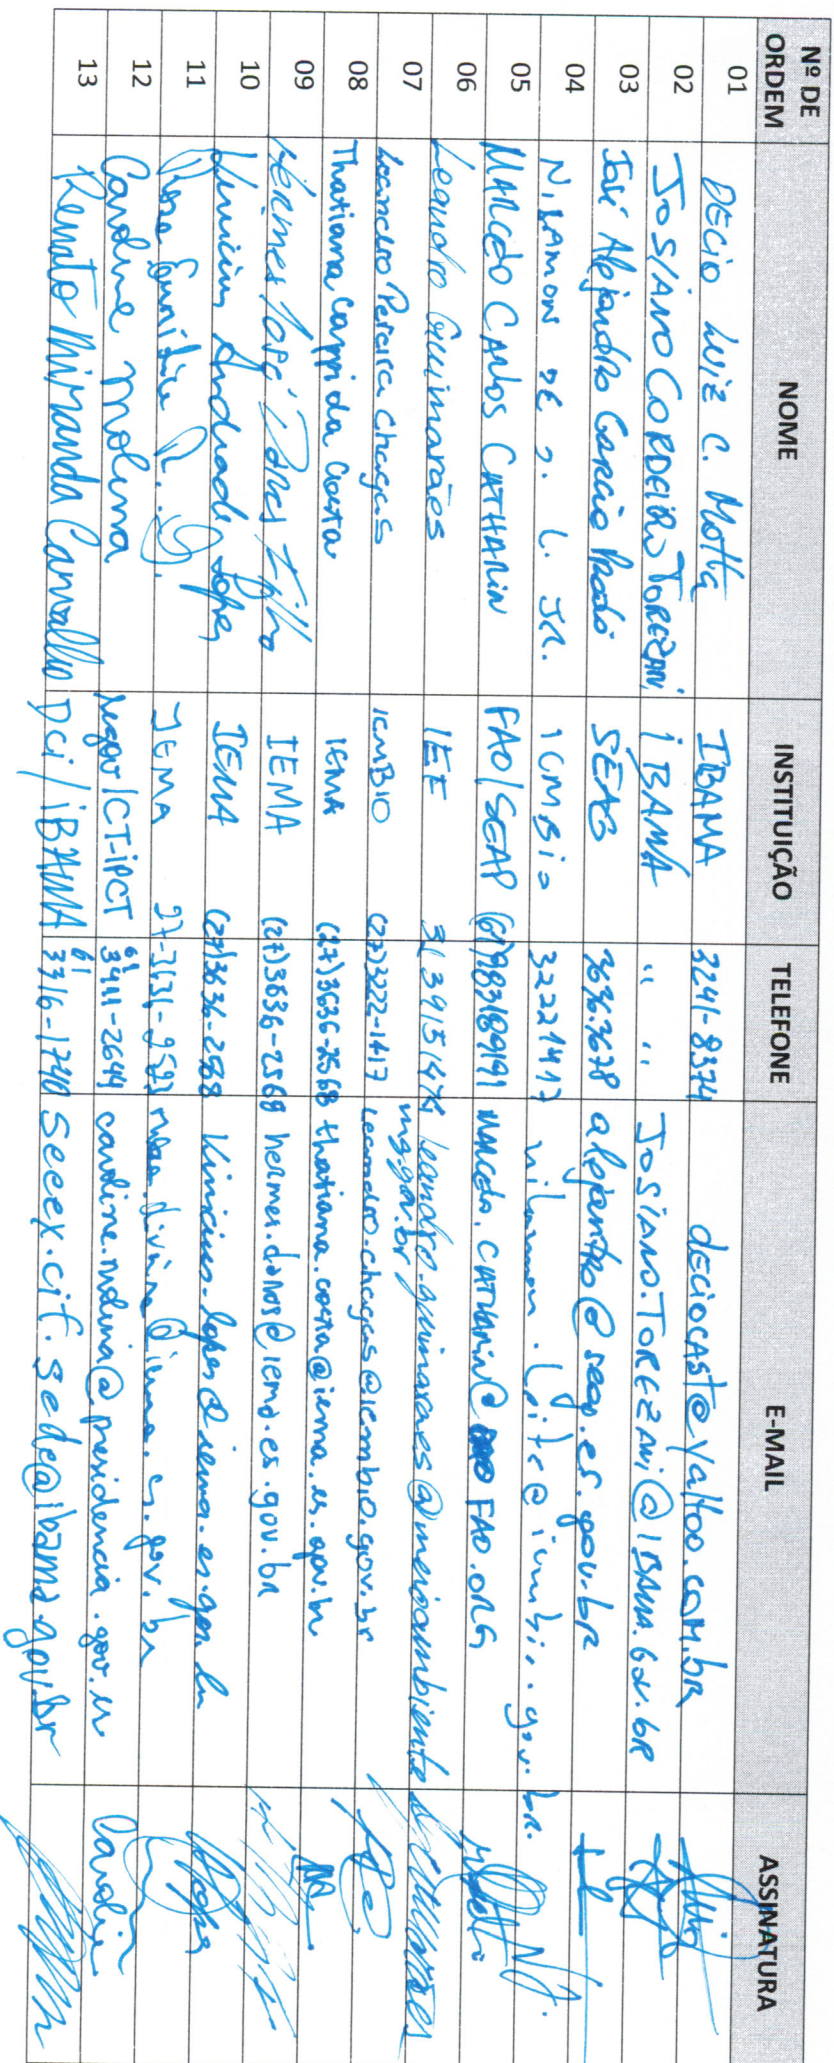 Nº DE ORDEM NOME INSTITUIÇÃO TELEFONE E-MAIL ASSINATURA
01 DECIO LUIZ C. Motta IBAMA 3241-8374 deciocast@yahoo.com.br
02 JOSIANO CORDEIRO TOREZANI IBAMA " " JOSIANO.TOREZANI@IBAMA.GOV.BR
03 José Alejandro Garcia Prado SEAG 3636.3678 alejandro@seag.es.gov.br
04 NILAMON DE O. L. JR. ICMBio 32221417 nilamon.leite@icmbio.gov.br.
05 MARCELO CARLOS CATHARIN FAO/SEAP (61)983189191 MARCELO.CATHARIN@FAO.ORG
06 Leandro Guimarães IEF 31 39151474 leandro.guimaraes@meioambiente
mg.gov.br
07 Leandro Pereira Chagas ICMBIO (27)3222-1417 leandro.chagas@icmbio.gov.br
08 Thatiana Carpi da Costa IEMA (27)3636-2568 thatiana.costa@iema.es.gov.br
09 Hermes José Dones Filho IEMA (27)3636-2568 hermes.dones@iema.es.gov.br
10 Vinicius Andrade Lopes IEMA (27)3636-2588 vinicius.lopes@iema.es.gov.br
11 IEMA iema.es.gov.br
12 Caroline Molina CT-IPCT 61 3411-2644 caroline.molina@presidencia.gov.br Caroline
13 Renato Miranda Carvalho DCI/IBAMA 61 3316-1740 secex.cif.sede@ibama.gov.br